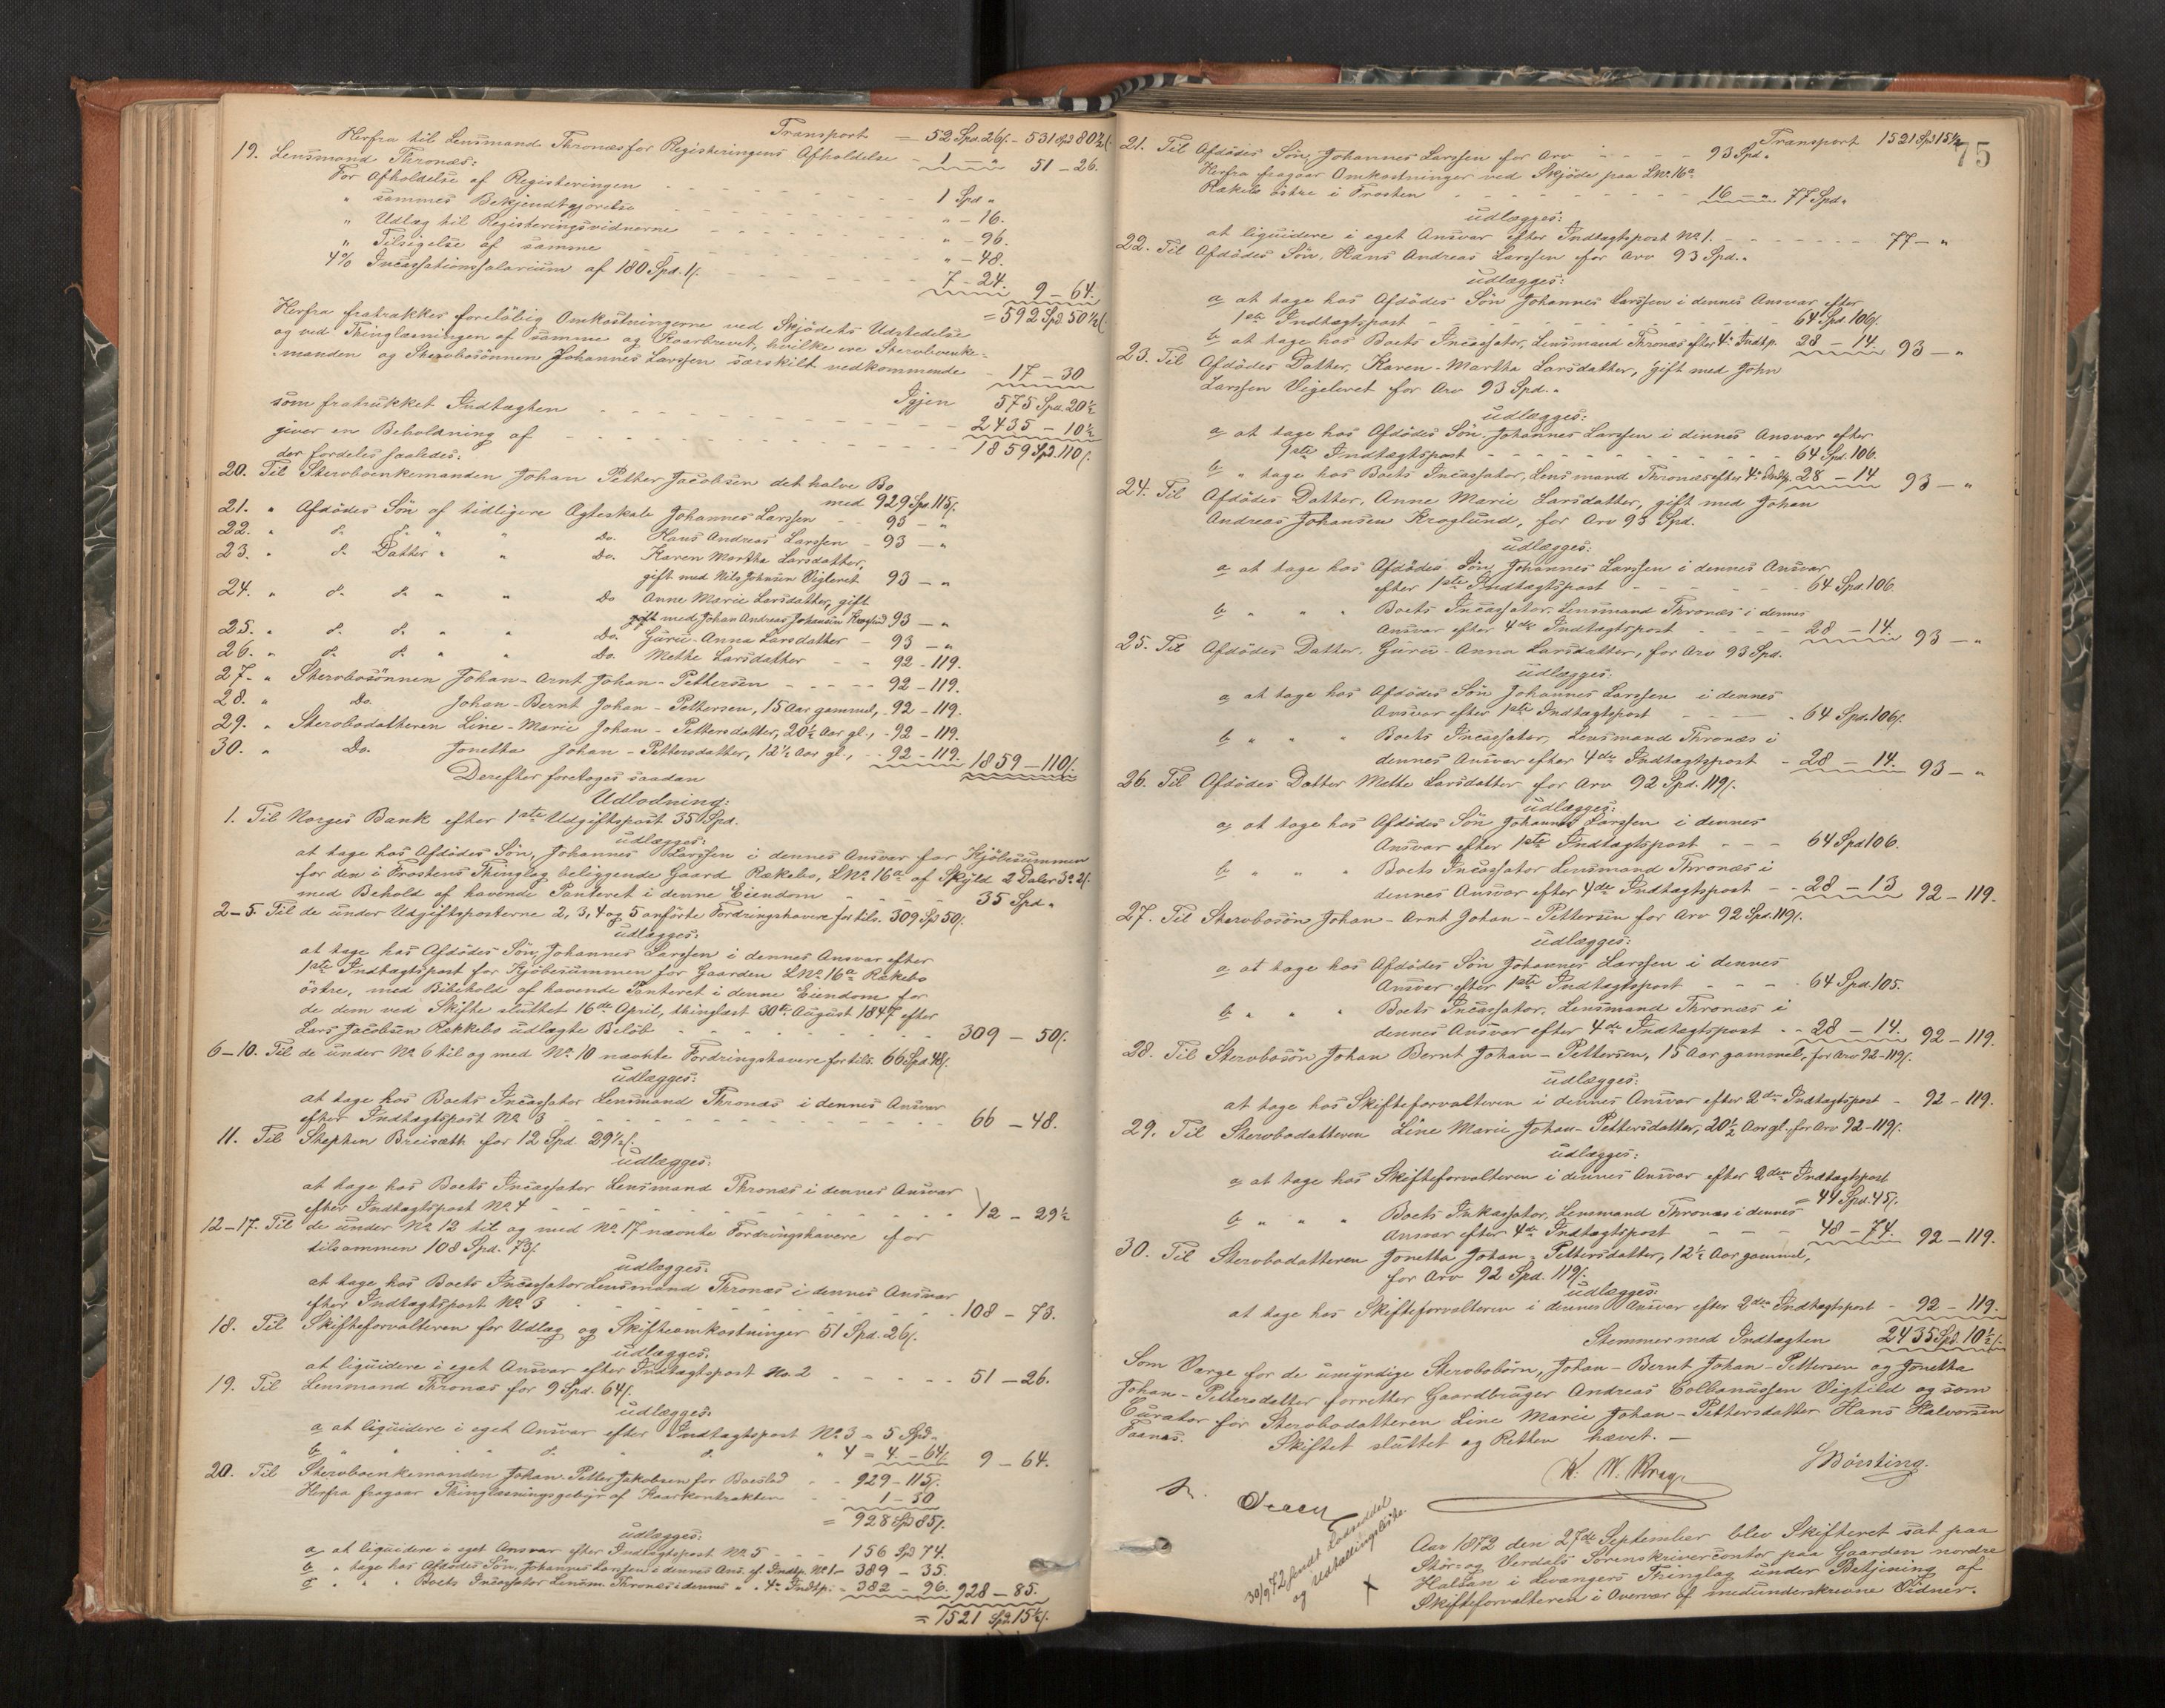 Transport = 52 Spd. 26 ß. - 531 Spd 80½ ß.
Herfra til Lensmand Thronæs for Registeringens Afholdelse - 1 - " 51 - 26.
19. Lensmand Thronæs:
For Afholdelse af Registeringen - - - 1 Spd "
" sammes Bekjendtgjørelse - - - " - 16.
" Udlæg til Registeringsvidnerne - - - " - 96.
" Tilsigelse af samme - - - " - 48.
4% Incassationssalarium af 180 Spd. 1 ß. - - - 7 - 24. 9 - 64.
= 592 Spd. 50½ ß.
Herfra fratrækkes foreløbig Omkostningerne ved Skjødets Udstedelse
og ved Thinglæsningen af samme og Kaarbrevet, hvilke ere Stervboenke-
manden og Stervbosønnen Johannes Larssen særskilt vedkommende - 17 - 30
Igjen 575 Spd. 20½
som fratrukket Indtægten - - - 2435 - 10½
giver en Beholdning af - - - 1859 Spd. 110 ß.
der fordeles saaledes:
20. Til Stervboenkemanden Johan Petter Jacobsen det halve Bo
med 929 Spd. 115 ß.
21. " Afdødes Søn af tidligere Ægteskab Johannes Larssen - 93 - "
22. " d. d. " " Do. Hans Andreas Larssen - 93 - "
23. " d. Datter " " Do. Karen Martha Larsdatter,
gift med Nils Johnsen Vigleret 93 - "
24. " d. d. " " Do Anne Marie Larsdatter, gift
gift med Johan Andreas Johansen Kroglund 93 - "
25. " d. d. " " Do. Guru-Anna Larsdatter - 93 - "
26. " d. d. " " Do. Mette Larsdatter - - 92 - 119.
27. " Stervbosønnen Johan-Arnt Johan-Pettersen - - - 92 - 119.
28. " Do. Johan-Bernt Johan-Pettersen, 15 Aar gammel, - 92 - 119.
29. " Stervbodatteren Line-Marie Johan-Pettersdatter, 20½ Aar gl., - 92 - 119.
30. " Do. Jonetha Johan-Pettersdatter, 12½ Aar gl., - 92 - 119. 1859 - 110 ß.
Derefter foretoges saadan
Udlodning:
1. Til Norges Bank efter 1ste Udgiftspost 35 Spd.
udlægges:
at tage hos Afdødes Søn, Johannes Larssen i dennes Ansvar for Kjøbesummen
for den i Frostens Thinglag beliggende Gaard Rækebo, LNo 16a af Skyld 2 Daler 3 o. 2 ß.
med Behold af havende Panteret i denne Eiendom - - - 35 Spd. "
2-5. Til de under Udgiftsposterne 2, 3, 4 og 5 anførte Fordringshavere for tils. 309 Spd 50 ß.
udlægges:
at tage hos Afdødes Søn, Johannes Larssen i dennes Ansvar efter
1ste Indtægtspost for Kjøbesummen for Gaarden LNo 16a Rækebo
østre, med Bibehold af havende Panteret i denne Eiendom for
de dem ved Skifte sluttet 16de April, thinglæst 30te August 1847 efter
Lars Jacobsen Rækkebo udlagte Beløb - - - 309 - 50 ß.
6-10. Til de under No 6 til og med No 10 nævnte Fordringshavere for tils. 66 Spd 48 ß.
udlægges:
at tage hos Boets Incassator Lensmand Thronæs i dennes Ansvar
efter Indtægtspost No 3 - - - 66 - 48.
11. Til Stephen Breisæth for 12 Spd 29½ ß.
udlægges:
at tage hos Boets Incassator Lensmand Thronæs i dennes Ansvar
efter Indtægtspost No 4 - - - 12 - 29½
12-17. Til de under No 12 til og med No 17 nævnte Fordringshavere for
tilsammen 108 Spd. 73 ß.
udlægges:
at tage hos Boets Incassator Lensmand Thronæs i dennes Ansvar
efter Indtægtspost No 3 - - - 108 - 73.
18. Til Skifteforvalteren for Udlæg og Skifteomkostninger 51 Spd. 26 ß.
udlægges:
at liquidere i eget Ansvar efter Indtægtspost No. 2 - - - 51 - 26.
19. Til Lensmand Thronæs for 9 Spd. 64 ß.
udlægges:
a at liquidere i eget Ansvar efter Indtægtspost No 3 = 5 Spd "
b " " " d. " d. " 4 = 4 - 64 ß. 9 - 64.
20. Til Stervboenkemanden Johan-Petter Jakobsen for Boeslod - - 929 - 115 ß.
Herfra fragaar Thinglæsningsgebyr af Kaarkontrakten - - 1 - 30
= 928 Spd 85 ß.
udlægges:
a at liquidere i eget Ansvar efter Indtægtspost No 5 - - - 156 Spd 74.
b " tage hos Afdødes Søn, Johannes Larssen i dennes Ans. ef. Indtp. No 1 - 389 - 35.
c " " " Boets Incassator Lensm. Thronæs i dennes " " 4de Indtp: - 382 - 96. 928 - 85.
= 1521 Spd. 15½ ß.
75
Transport 1521 Spd 15½
21. Til Afdødes Søn, Johannes Larssen for Arv - - - 93 Spd. "
Herfra fragaar Omkostninger ved Skjøde paa LNo 16a
Rækebo østre i Frosten - - - 16 - " 77 Spd. "
udlægges:
at liquidere i eget Ansvar efter Indtægtspost No 1. - - - 77 - "
22. Til Afdødes Søn, Hans Andreas Larssen for Arv 93 Spd. "
udlægges:
a at tage hos Afdødes Søn Johannes Larssen i dennes Ansvar efter
1ste Indtægtspost - - - 64 Spd. 106 ß.
b at tage hos Boets Incassator, Lensmand Thronæs efter 4de Indtp. 28 - 14. 93 - "
23. Til Afdødes Datter, Karen-Martha Larsdatter, gift med John
Larssen Vigeleret for Arv 93 Spd. "
udlægges:
a at tage hos Afdødes Søn, Johannes Larssen i dennes Ansvar efter
1ste Indtægtspost - - - 64 Spd. 106.
b " tage hos Boets Incassator, Lensmand Thronæs efter 4de Indtp. 28 - 14 93 - "
24. Til Afdødes Datter, Anne Marie Larsdatter, gift med Johan
Andreas Johansen Kroglund, for Arv 93 Spd.
udlægges:
a at tage hos Afdødes Søn, Johannes Larssen i dennes Ansvar
efter 1ste Indtægtspost - - - 64 Spd. 106.
b " " " Boets Incassator, Lensmand Thronæs i dennes
Ansvar efter 4de Indtægtspost - - - 28 - 14. 93 - "
25. Til Afdødes Datter, Guru-Anna Larsdatter, for Arv 93 Spd.
udlægges:
a at tage hos Afdødes Søn Johannes Larssen i dennes
Ansvar efter 1ste Indtægtspost - - - 64 Spd. 106 ß.
b " " " Boets Incassator, Lensmand Thronæs i
dennes Ansvar efter 4de Indtægtspost - 28 - 14. 93 - "
26. Til Afdødes Datter Mette Larsdatter for Arv 92 Spd. 119 ß.
udlægges:
a at tage hos Afdødes Søn Johannes Larssen i dennes
Ansvar efter 1ste Indtægtspost - - - 64 Spd 106.
b " " " Boets Incassator Lensmand Thronæs i
dennes Ansvar efter 4de Indtægtspost - - 28 - 13 92 - 119.
27. Til Stervbosøn Johan-Arnt Johan-Pettersen for Arv 92 Spd. 119 ß.
udlægges:
a at tage hos Afdødes Søn Johannes Larssen i dennes
Ansvar efter 1ste Indtægtspost - - - 64 Spd. 105.
b " " " Boets Incassator, Lensmand Thronæs i
dennes Ansvar efter 4de Indtægtspost - - 28 - 14. 92 - 119.
28. Til Stervbosøn Johan Bernt Johan-Pettersen, 15 Aar gammel, for Arv 92 - 119 ß.
udlægges:
at tage hos Skifteforvalteren i dennes Ansvar efter 2den Indtægtspost - 92 - 119.
29. Til Stervbodatteren Line Marie Johan-Pettersdatter, 20½ Aar gl. for Arv 92 - 119 ß.
udlægges:
a at tage hos Skifteforvalteren i dennes Ansvar efter 2den Indtægtspost
= 44 Spd. 45 ß.
b " " " Boets Inkassator, Lensmand Thronæs i dennes
Ansvar efter 4de Indtægtspost - - - 48 - 74. 92 - 119.
30. Til Stervbodatteren Jonetha Johan-Pettersdatter, 12½ Aar gammel,
for Arv 92 Spd. 119 ß.
udlægges:
at tage hos Skifteforvalteren i dennes Ansvar efter 2den Indtægtspost - 92 - 119.
Stemmer med Indtægten 2435 Spd. 10½ ß.
Som Værge for de umyndige Stervbobørn, Johan-Bernt Johan-Pettersen og Jonetha
Johan-Pettersdatter forretter Gaardbruger Andreas Colbanussen Vigtild og som
Curator for Stervbodatteren Line Marie Johan-Pettersdatter Hans Halvorsen
Faanæs. Skiftet sluttet og Retten hævet. -
K. W. Krag
30/9 72 sendt Lodseddel
og Udbetalingsliste.
Aar 1872 den 27de September blev Skifteret sat paa
Stør- og Værdals Sorenskrivercontor paa Gaarden nordre
Halsan i Levangers Thinglag under Betjening af
Skifteforvalteren i Overvær af medunderskrevne Vidner.